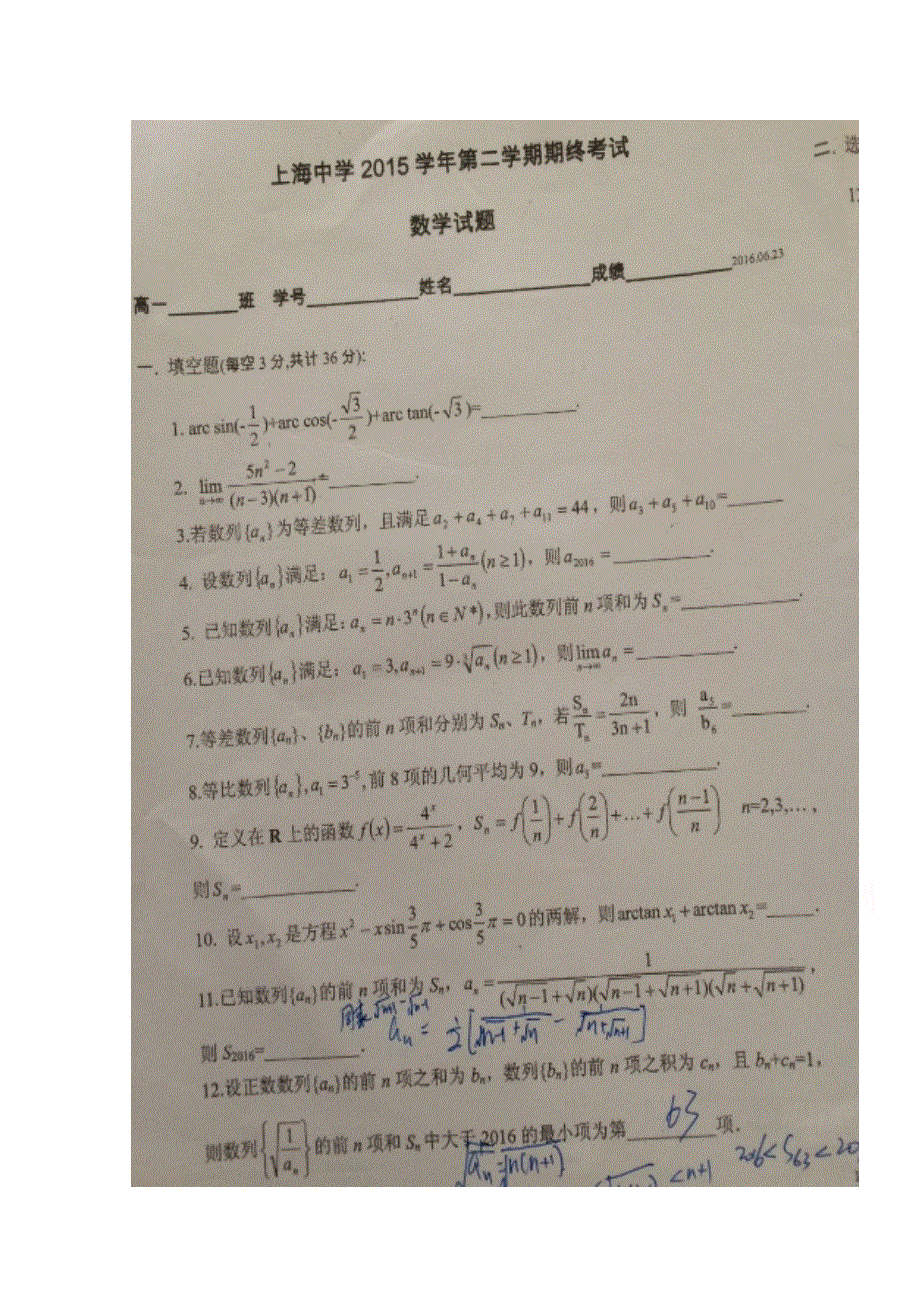 上海中学 2015 学年第二学期期终考试
二. 选
数学试题
高一______班 学号________姓名__________成绩________2016.06.23
一. 填空题(每空 3 分,共计 36 分):
1. arc sin(-1/2)+arc cos(-√3/2)+arc tan(-√3)=________.
2. lim(n→∞) (5n²-2)/((n-3)(n+1))=________.
3.若数列{aₙ}为等差数列，且满足a₂+a₄+a₇+a₁₁=44，则a₃+a₅+a₁₀=_____
4. 设数列{aₙ}满足：a₁=1/2,aₙ₊₁=(1+aₙ)/(1-aₙ)(n≥1)，则a₂₀₁₆=________.
5. 已知数列{aₙ}满足：aₙ=n·3ⁿ(n∈N*),则此数列前 n 项和为 Sₙ=________.
6.已知数列{aₙ}满足：a₁=3,aₙ₊₁=9·∛aₙ(n≥1)，则lim(n→∞) aₙ=________.
7.等差数列{aₙ}、{bₙ}的前 n 项和分别为 Sₙ、Tₙ，若Sₙ/Tₙ=2n/(3n+1)，则 a₅/b₆=______.
8.等比数列{aₙ},a₁=3⁻⁵,前 8 项的几何平均为 9，则a₃=________.
9. 定义在 R 上的函数f(x)=4ˣ/(4ˣ+2)，Sₙ=f(1/n)+f(2/n)+…+f((n-1)/n) n=2,3,…，
则Sₙ=________.
10. 设x₁,x₂是方程x²-xsin(3/5)π+cos(3/5)π=0的两解，则arctan x₁+arctan x₂=_____.
11.已知数列{aₙ}的前 n 项和为 Sₙ，aₙ=1/((√(n-1)+√n)(√(n-1)+√(n+1))(√n+√(n+1)))，
同乘√(n+1)-√(n-1) aₙ = 1/2[1/(√(n-1)+√n) - 1/(√n+√(n+1))]
则 S₂₀₁₆=________.
12.设正数数列{aₙ}的前 n 项之和为 bₙ，数列{bₙ}的前 n 项之积为 cₙ，且 bₙ+cₙ=1，
则数列{√(1/aₙ)}的前 n 项和 Sₙ 中大于 2016 的最小项为第 63 项.
<n+1 2016<S₆₃<20